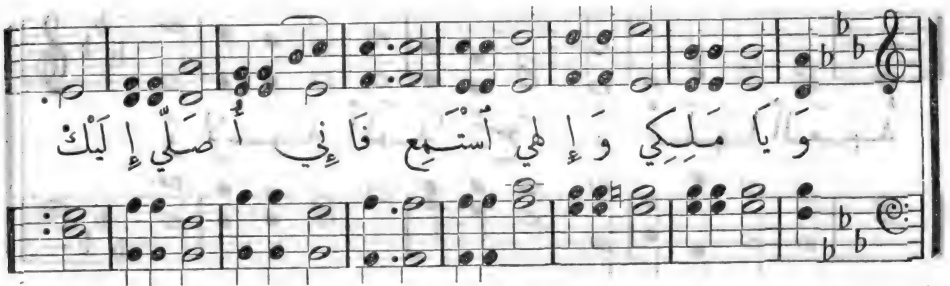 وَ يَا مَلِكِي وَ إِلهِي اُسْتَمِع فَإِنِي أُصَلِّي إِلَيْكْ